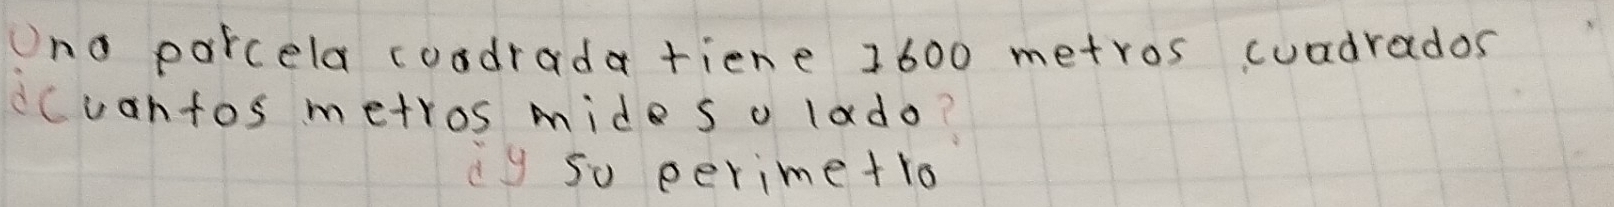 Una parcela cuadrada tiene 1600 metros cuadrados
¿Cuantos metros mide su lado?
¿y su perimetro